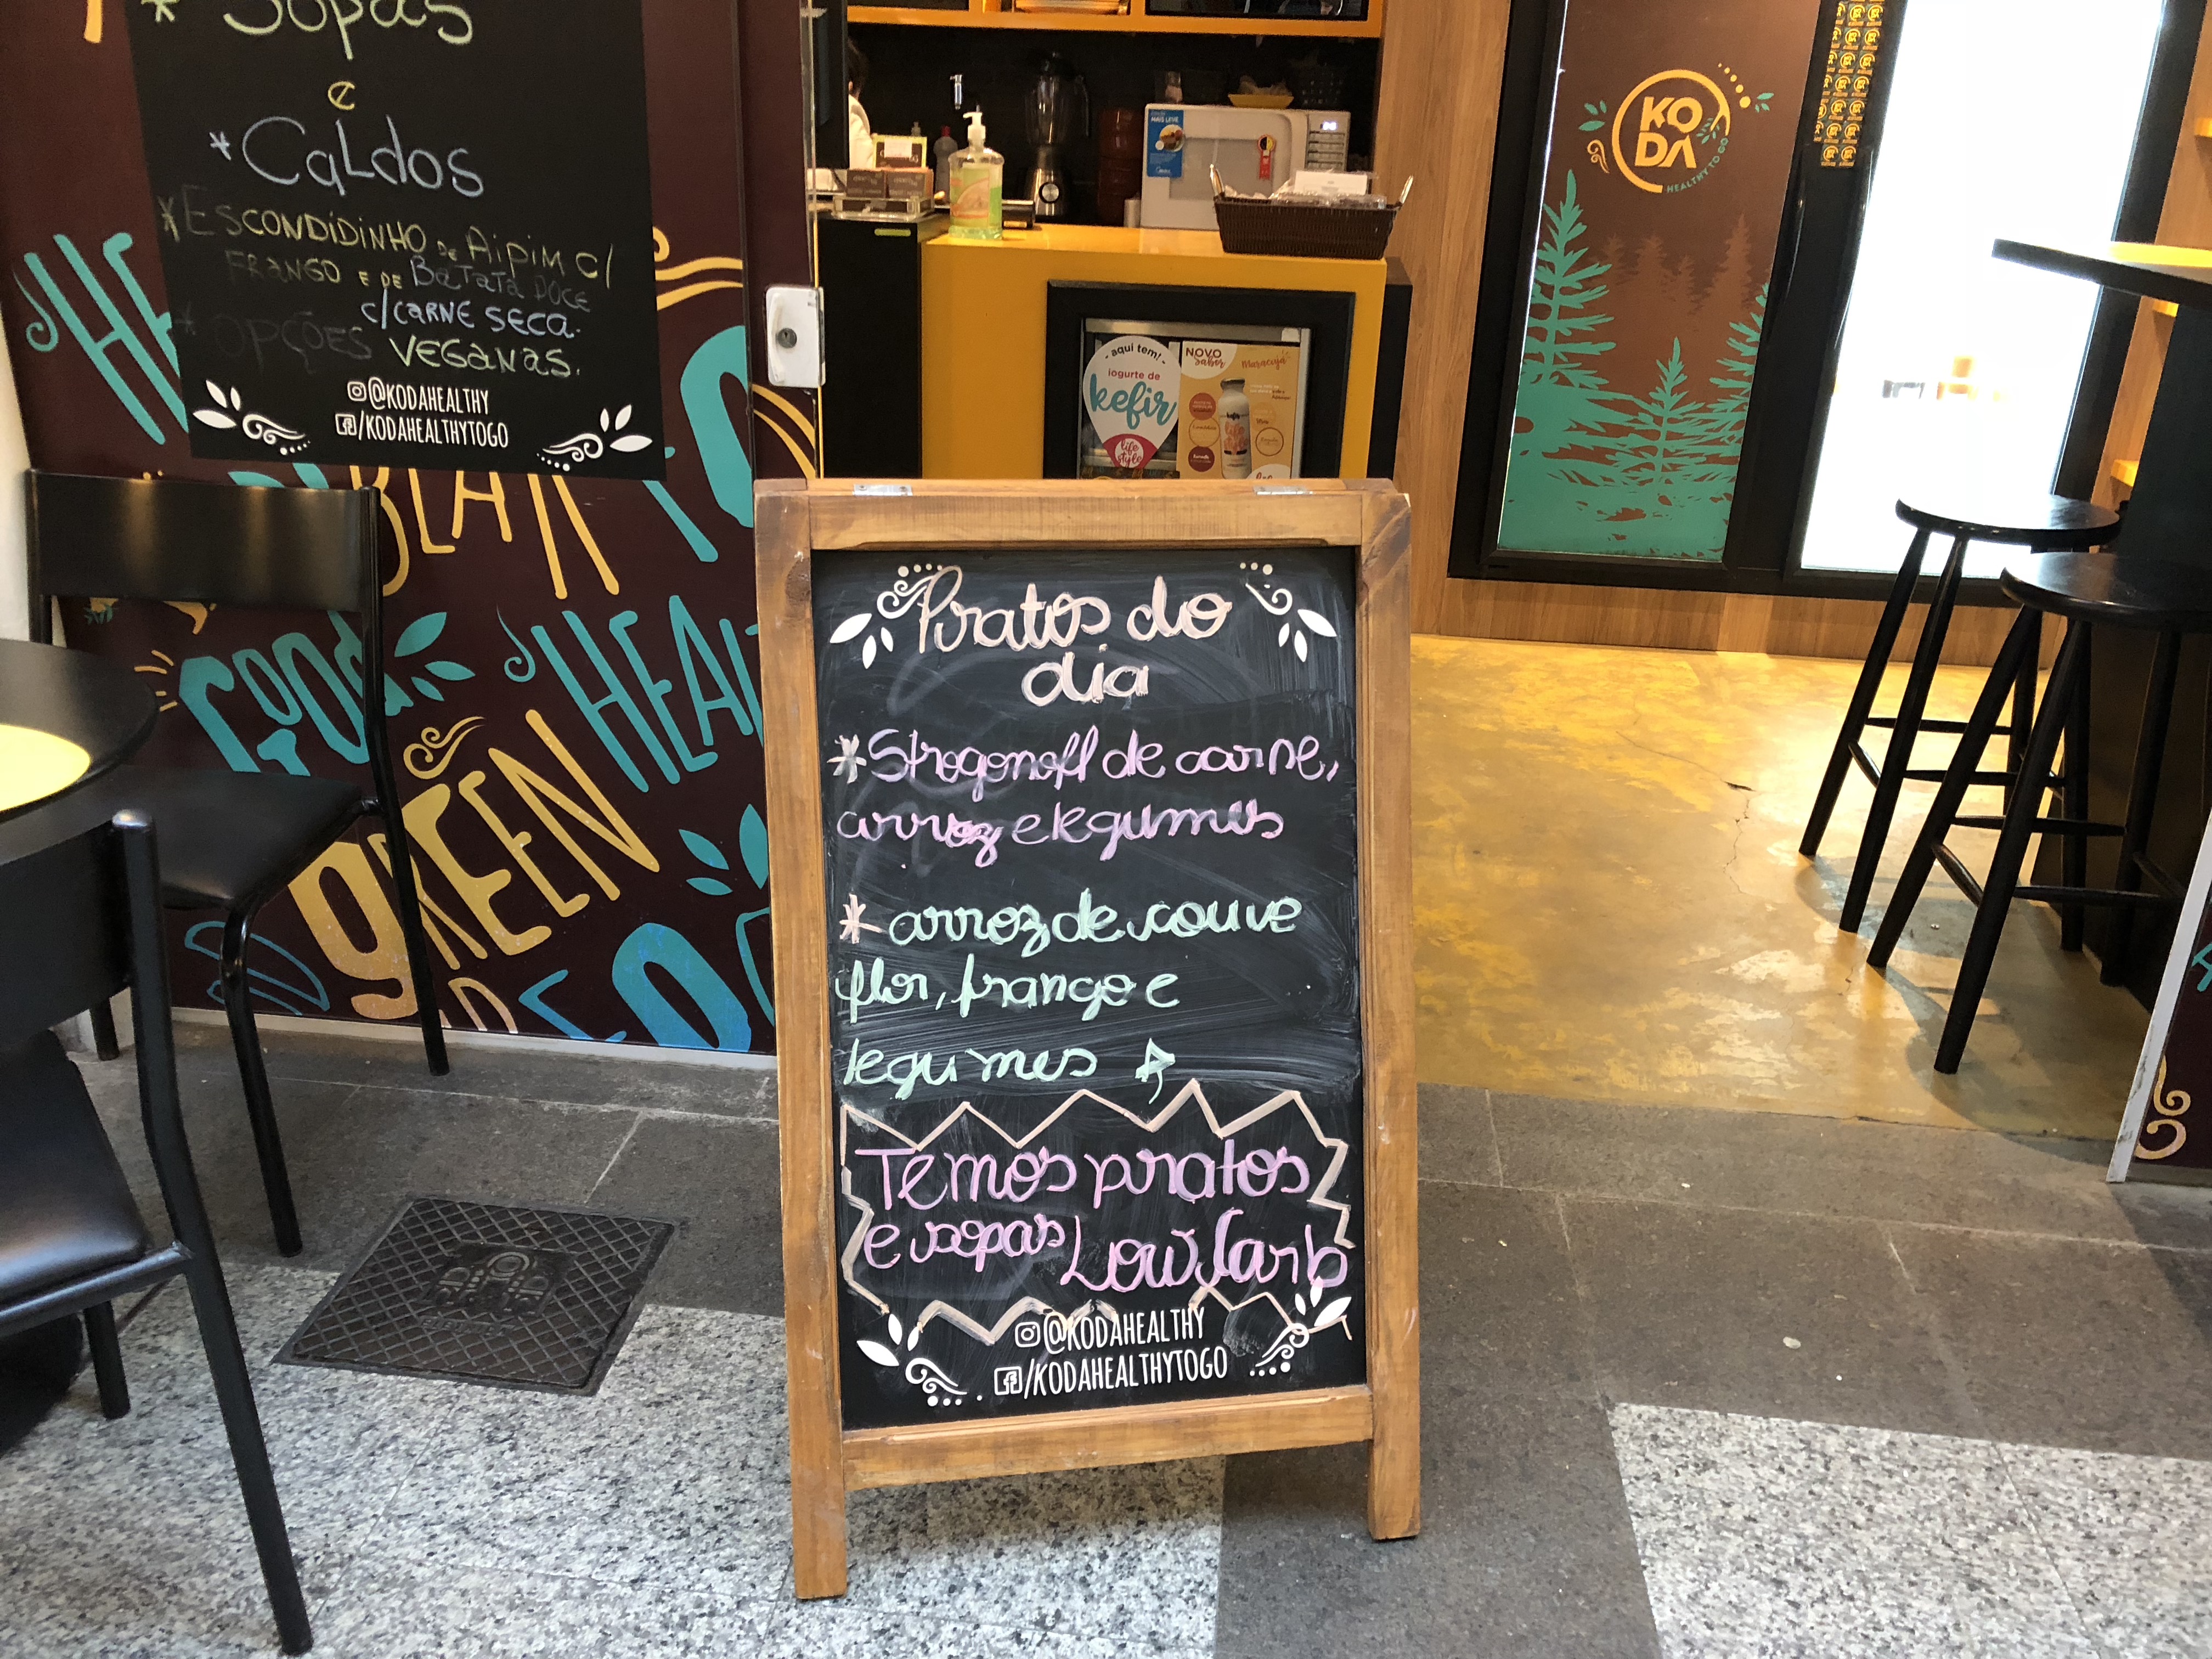 *Sopas
e
*Caldos
*Escondidinho de Aipim c/
Frango e de Batata Doce
c/carne seca.
* opções veganas.
@KODAHEALTHY
/KODAHEALTHYTOGO
KO
DA
HEALTHY TO GO
- aqui tem! -
iogurte de
kefir
life
style
NOVO
sabor
Maracujá
GOOD
GREEN
Pratos do
dia
*Strogonoff de carne,
arroz e legumes
* arroz de couve
flor, frango e
legumes
Temos pratos
e sopas Low Carb
@KODAHEALTHY
/KODAHEALTHYTOGO